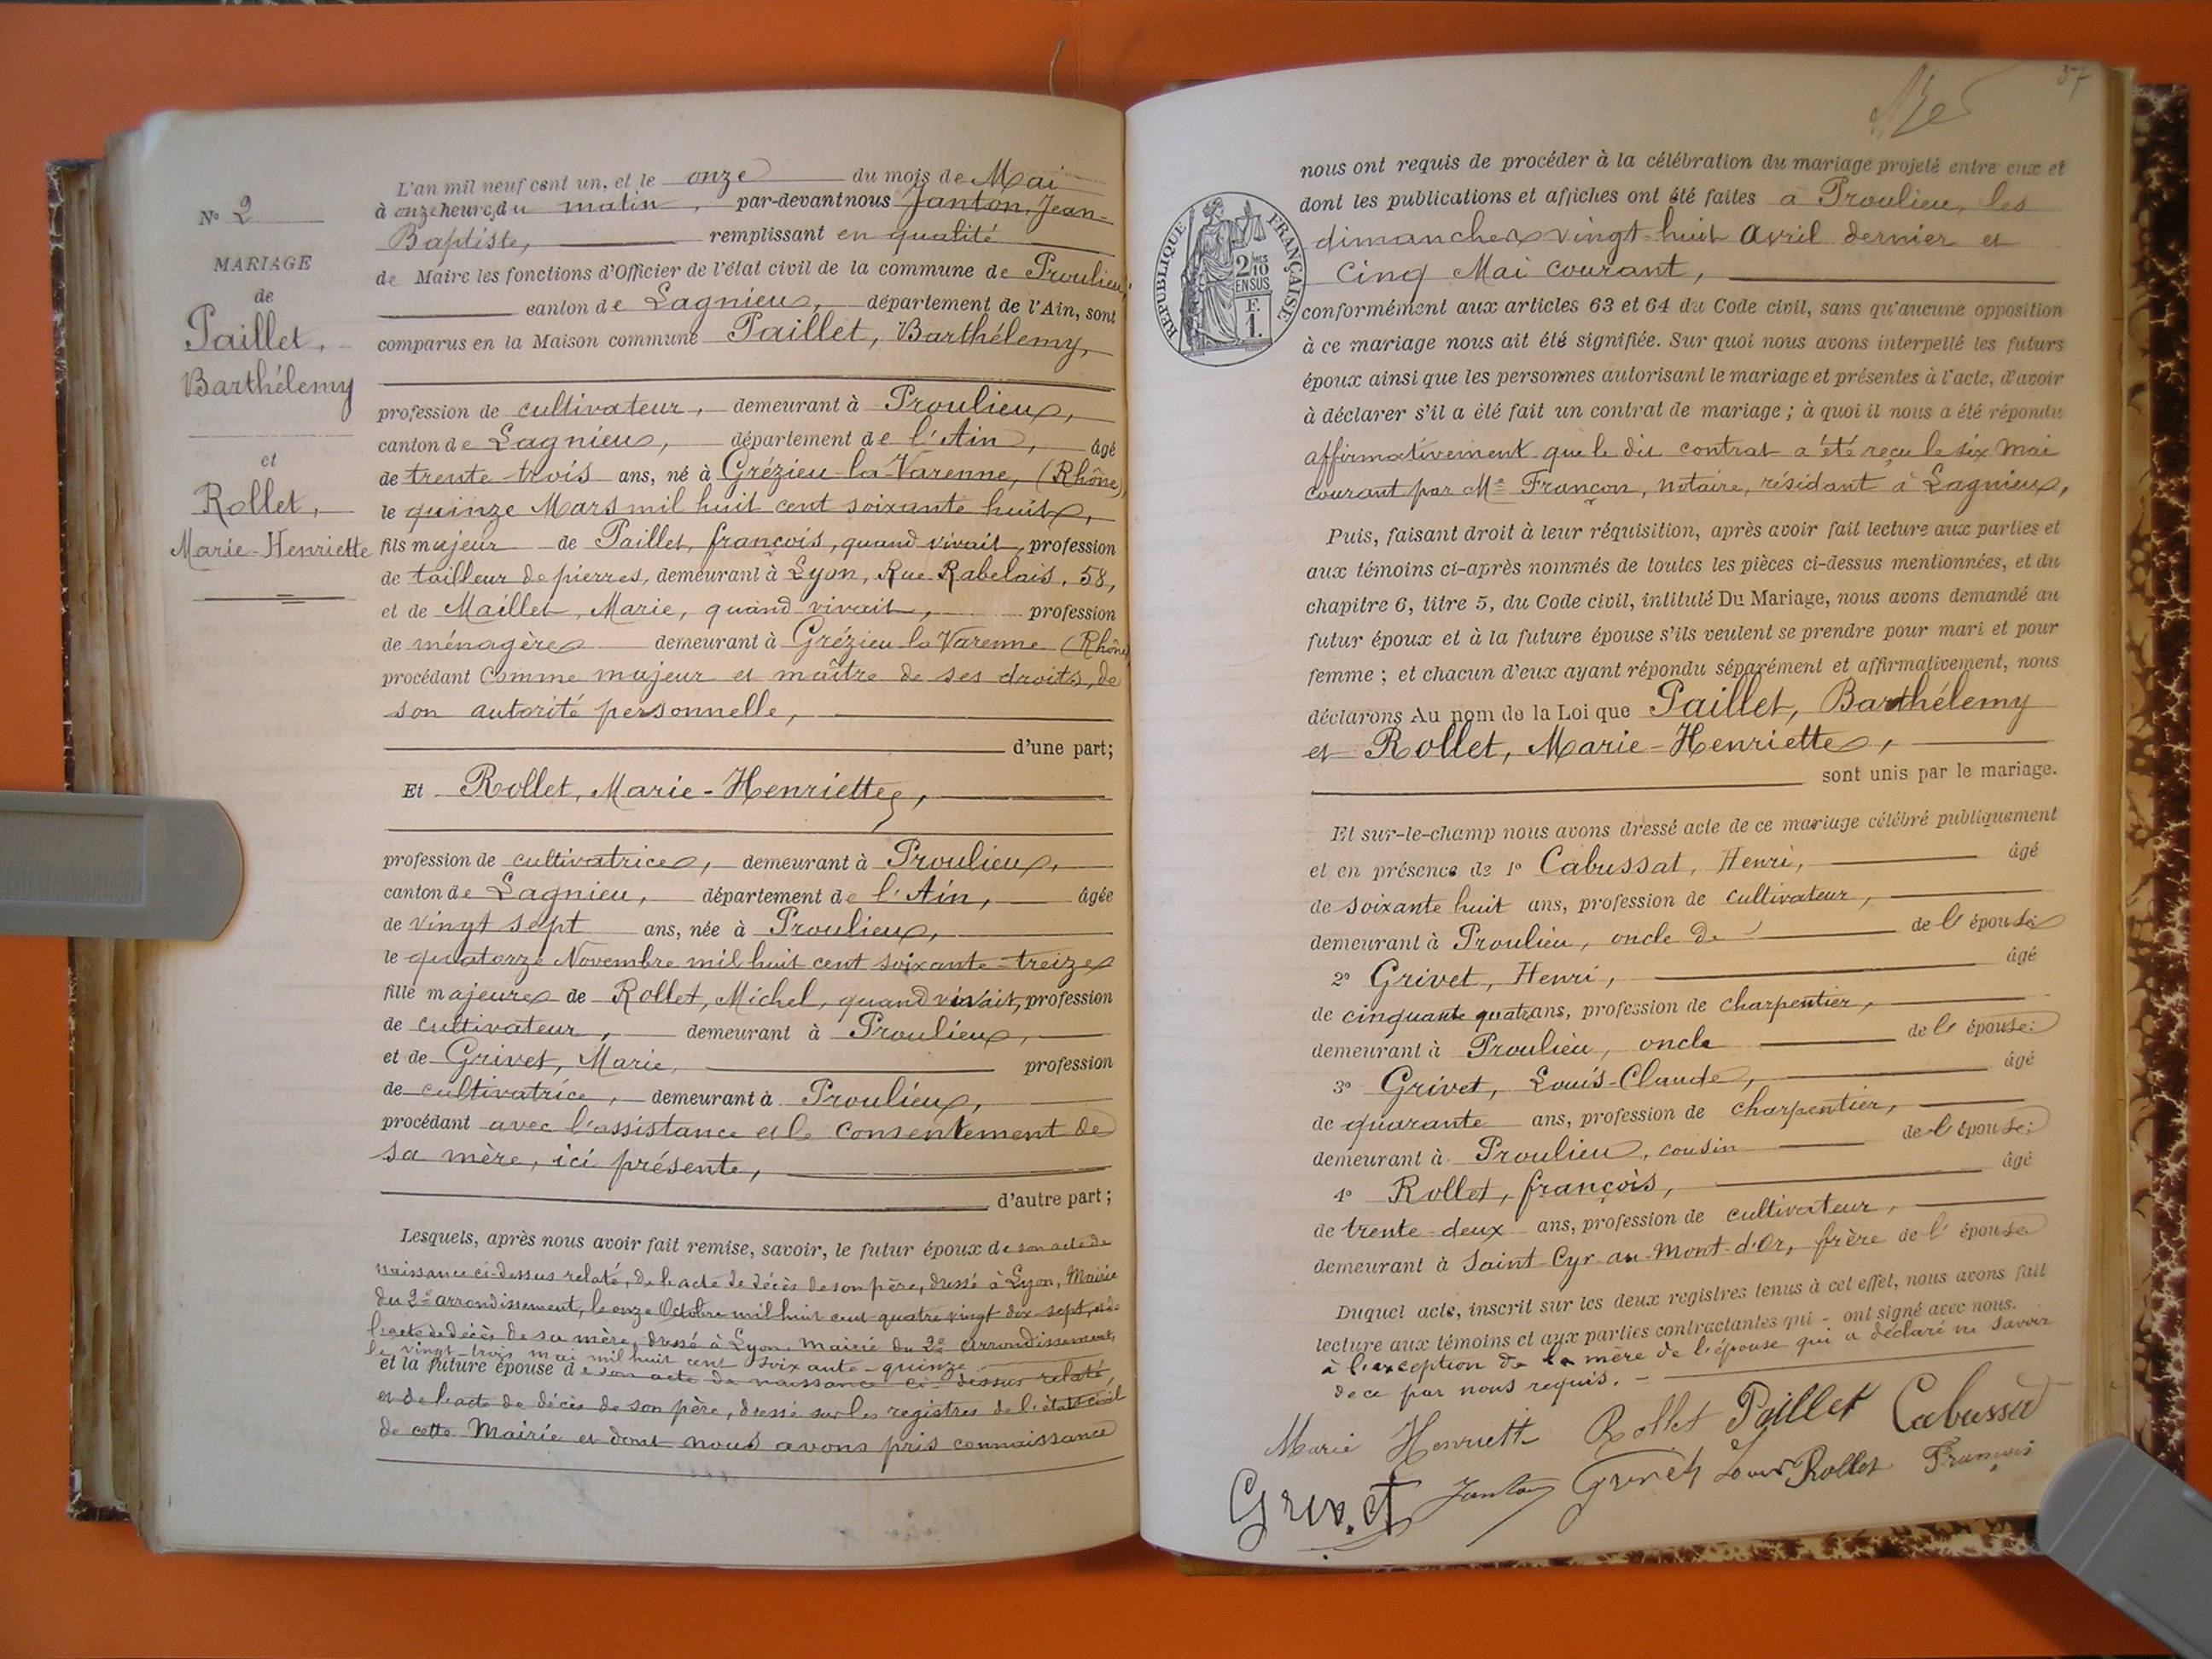 N° 2
MARIAGE
de
Paillet,
Barthélemy
et
Rollet,
Marie-Henriette
L'an mil neuf cent un, et le onze du mois de Mai
à onze heures du matin, par-devant nous Janton, Jean-
Baptiste, remplissant en qualité
de Maire les fonctions d'Officier de l'état civil de la commune de Proulieu,
canton de Lagnieu, département de l'Ain, sont
comparus en la Maison commune Paillet, Barthélemy,
profession de cultivateur, demeurant à Proulieu,
canton de Lagnieu, département de l'Ain, âgé
de trente trois ans, né à Grézieu-la-Varenne, (Rhône)
le quinze Mars mil huit cent soixante huit,
fils majeur de Paillet, françois, quand vivait, profession
de tailleur de pierres, demeurant à Lyon, Rue Rabelais, 58,
et de Maillet, Marie, quand vivait, profession
de ménagère demeurant à Grézieu la Varenne (Rhône)
procédant comme majeur et maître de ses droits, de
son autorité personnelle,
d'une part;
Et Rollet, Marie-Henriette,
profession de cultivatrice, demeurant à Proulieu,
canton de Lagnieu, département de l'Ain, âgée
de vingt sept ans, née à Proulieu,
le quatorze Novembre mil huit cent soixante-treize
fille majeure de Rollet, Michel, quand vivait, profession
de cultivateur, demeurant à Proulieu,
et de Grivet, Marie, profession
de cultivatrice, demeurant à Proulieu,
procédant avec l'assistance et le consentement de
sa mère, ici présente,
d'autre part;
Lesquels, après nous avoir fait remise, savoir, le futur époux de son acte de
naissance ci-dessus relaté, de l'acte de décès de son père, dressé à Lyon, Mairie
du 2e arrondissement, le onze Octobre mil huit cent quatre vingt dix-sept, et de
l'acte de décès de sa mère, dressé à Lyon, mairie du 2e arrondissement,
le vingt-trois mai mil huit cent soixante-quinze
et la future épouse de son acte de naissance ci-dessus relaté,
et de l'acte de décès de son père, dressé sur les registres de l'état-civil
de cette Mairie et dont nous avons pris connaissance
37
RÉPUBLIQUE FRANÇAISE
2/10 EN SUS
F.
1.
nous ont requis de procéder à la célébration du mariage projeté entre eux et
dont les publications et affiches ont été faites à Proulieu, les
dimanches vingt-huit Avril dernier et
cinq Mai courant,
conformément aux articles 63 et 64 du Code civil, sans qu'aucune opposition
à ce mariage nous ait été signifiée. Sur quoi nous avons interpellé les futurs
époux ainsi que les personnes autorisant le mariage et présentes à l'acte, d'avoir
à déclarer s'il a été fait un contrat de mariage; à quoi il nous a été répondu
affirmativement que le dit contrat a été reçu le six mai
courant par Me Françon, notaire, résidant à Lagnieu,
Puis, faisant droit à leur réquisition, après avoir fait lecture aux parties et
aux témoins ci-après nommés de toutes les pièces ci-dessus mentionnées, et du
chapitre 6, titre 5, du Code civil, intitulé Du Mariage, nous avons demandé au
futur époux et à la future épouse s'ils veulent se prendre pour mari et pour
femme; et chacun d'eux ayant répondu séparément et affirmativement, nous
déclarons Au nom de la Loi que Paillet, Barthélemy
et Rollet, Marie-Henriette,
sont unis par le mariage.
Et sur-le-champ nous avons dressé acte de ce mariage célébré publiquement
et en présence de 1° Cabussat, Henri, âgé
de soixante huit ans, profession de cultivateur,
demeurant à Proulieu, oncle de de l'épouse
2° Grivet, Henri, âgé
de cinquante quatre ans, profession de charpentier,
demeurant à Proulieu, oncle de l'épouse;
3° Grivet, Louis-Claude, âgé
de quarante ans, profession de charpentier,
demeurant à Proulieu, cousin de l'épouse;
4° Rollet, françois, âgé
de trente-deux ans, profession de cultivateur,
demeurant à Saint-Cyr-au-Mont-d'Or, frère de l'épouse
Duquel acte, inscrit sur les deux registres tenus à cet effet, nous avons fait
lecture aux témoins et aux parties contractantes qui ont signé avec nous.
à l'exception de la mère de l'épouse qui a déclaré ne savoir
de ce par nous requis.
Marie Henriette Rollet Paillet Cabussat
Grivet Janton Grivet Louis Rollet François